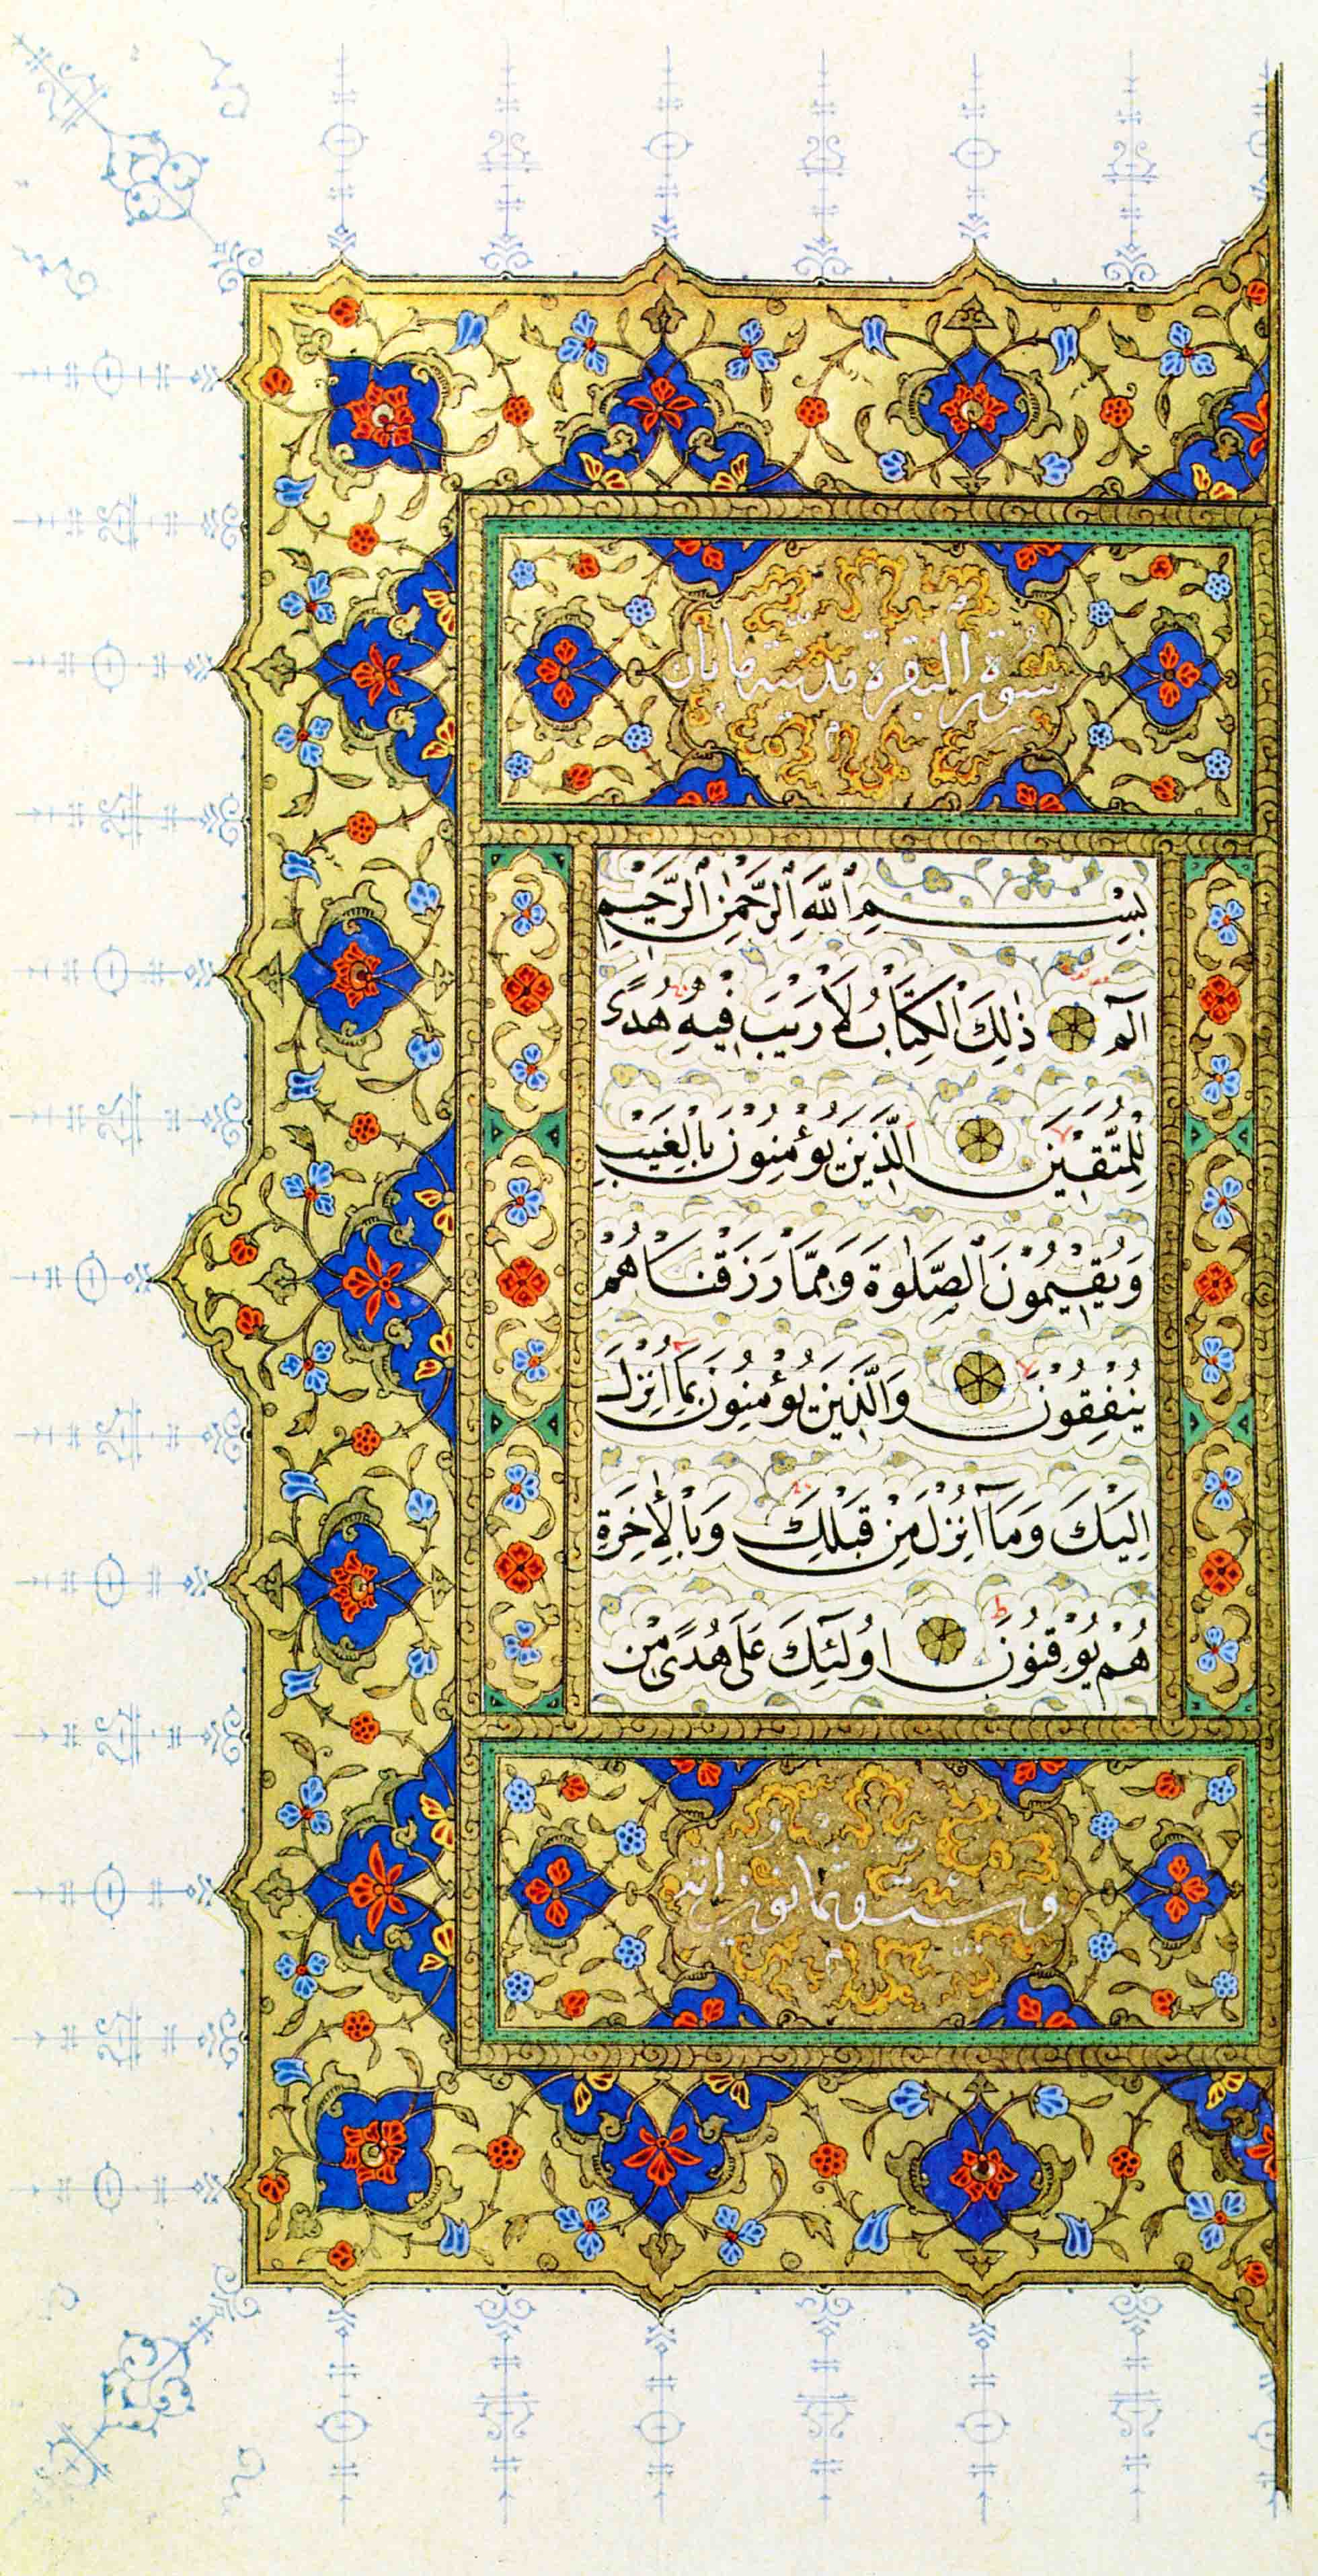 سورة البقرة مدنية مايتان
بِسْمِ ٱللَّهِ ٱلرَّحْمٰنِ ٱلرَّحِيمِ
الٓمٓ ذٰلِكَ ٱلْكِتَابُ لَا رَيْبَ فِيهِ هُدًى
لِلْمُتَّقِينَ ٱلَّذِينَ يُؤْمِنُونَ بِالْغَيْبِ
وَيُقِيمُونَ ٱلصَّلٰوةَ وَمِمَّا رَزَقْنَاهُمْ
يُنْفِقُونَ وَالَّذِينَ يُؤْمِنُونَ بِمَا اُنْزِلَ
اِلَيْكَ وَمَا اُنْزِلَ مِنْ قَبْلِكَ وَبِالْأٰخِرَةِ
هُمْ يُوقِنُونَ اُولٰئِكَ عَلٰى هُدًى مِنْ
وست وثمانون اية